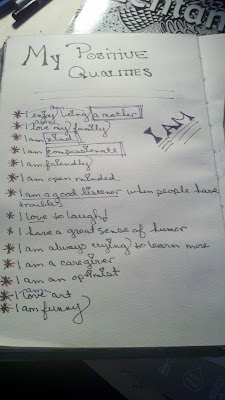 My Positive
Qualities
am
* I enjoy being a mother
* I love my family
* I am kind
I AM
* I am compassionate
* I am friendly
* I am open minded
* I am a good listener when people have
troubles
* I love to laugh
* I have a great sense of humor
* I am always trying to learn more
* I am a caregiver
* I am an optimist
am
* I love art
* I am funny